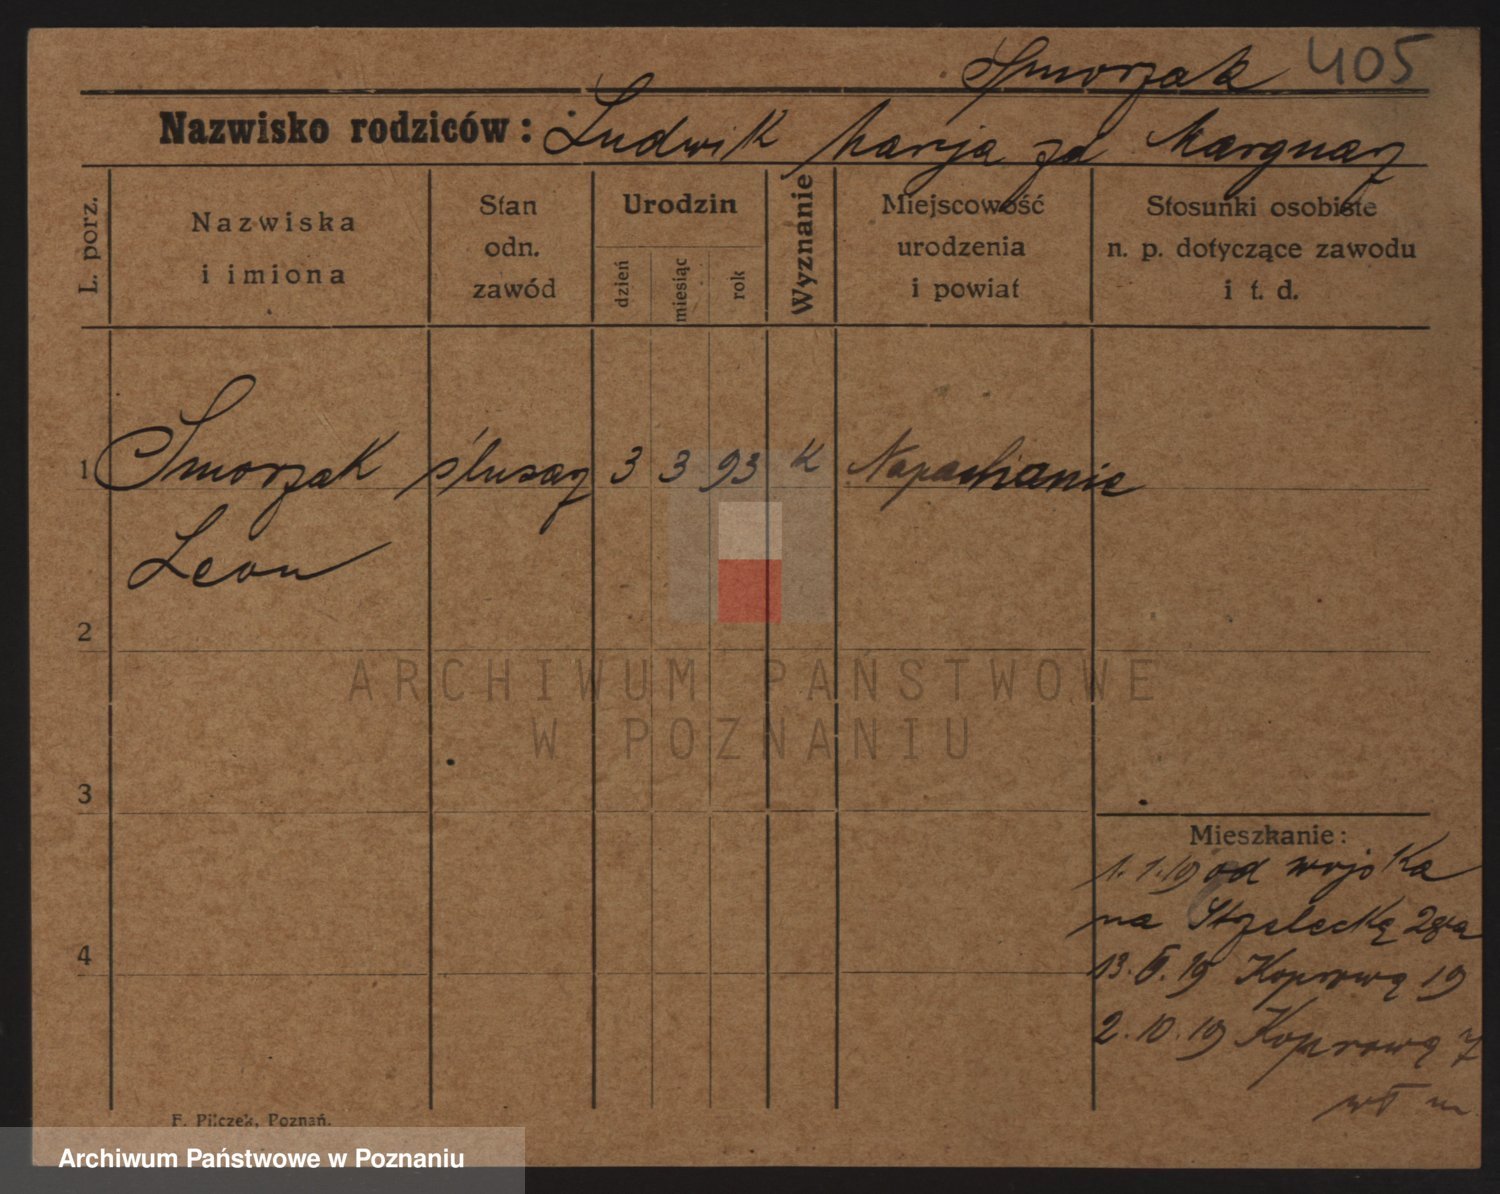 Smorzak 405
Nazwisko rodziców: Ludwik Marja zd Kargnarz
L. porz.
Nazwiska i imiona
Stan odn. zawód
Urodzin
dzień
miesiąc
rok
Wyznanie
Miejscowość urodzenia i powiat
Stosunki osobiste n. p. dotyczące zawodu i t. d.
1 Smorzak ślusarz 3 3 93 k Napachanie
Leon
2
3
4
Mieszkanie:
1.1.19 od wojska
na Strzelecką 28a
13. 19 Koprową 19
2.10.19 Koprową 7
F. Pilczek, Poznań.
ARCHIWUM PAŃSTWOWE
W POZNANIU
Archiwum Państwowe w Poznaniu